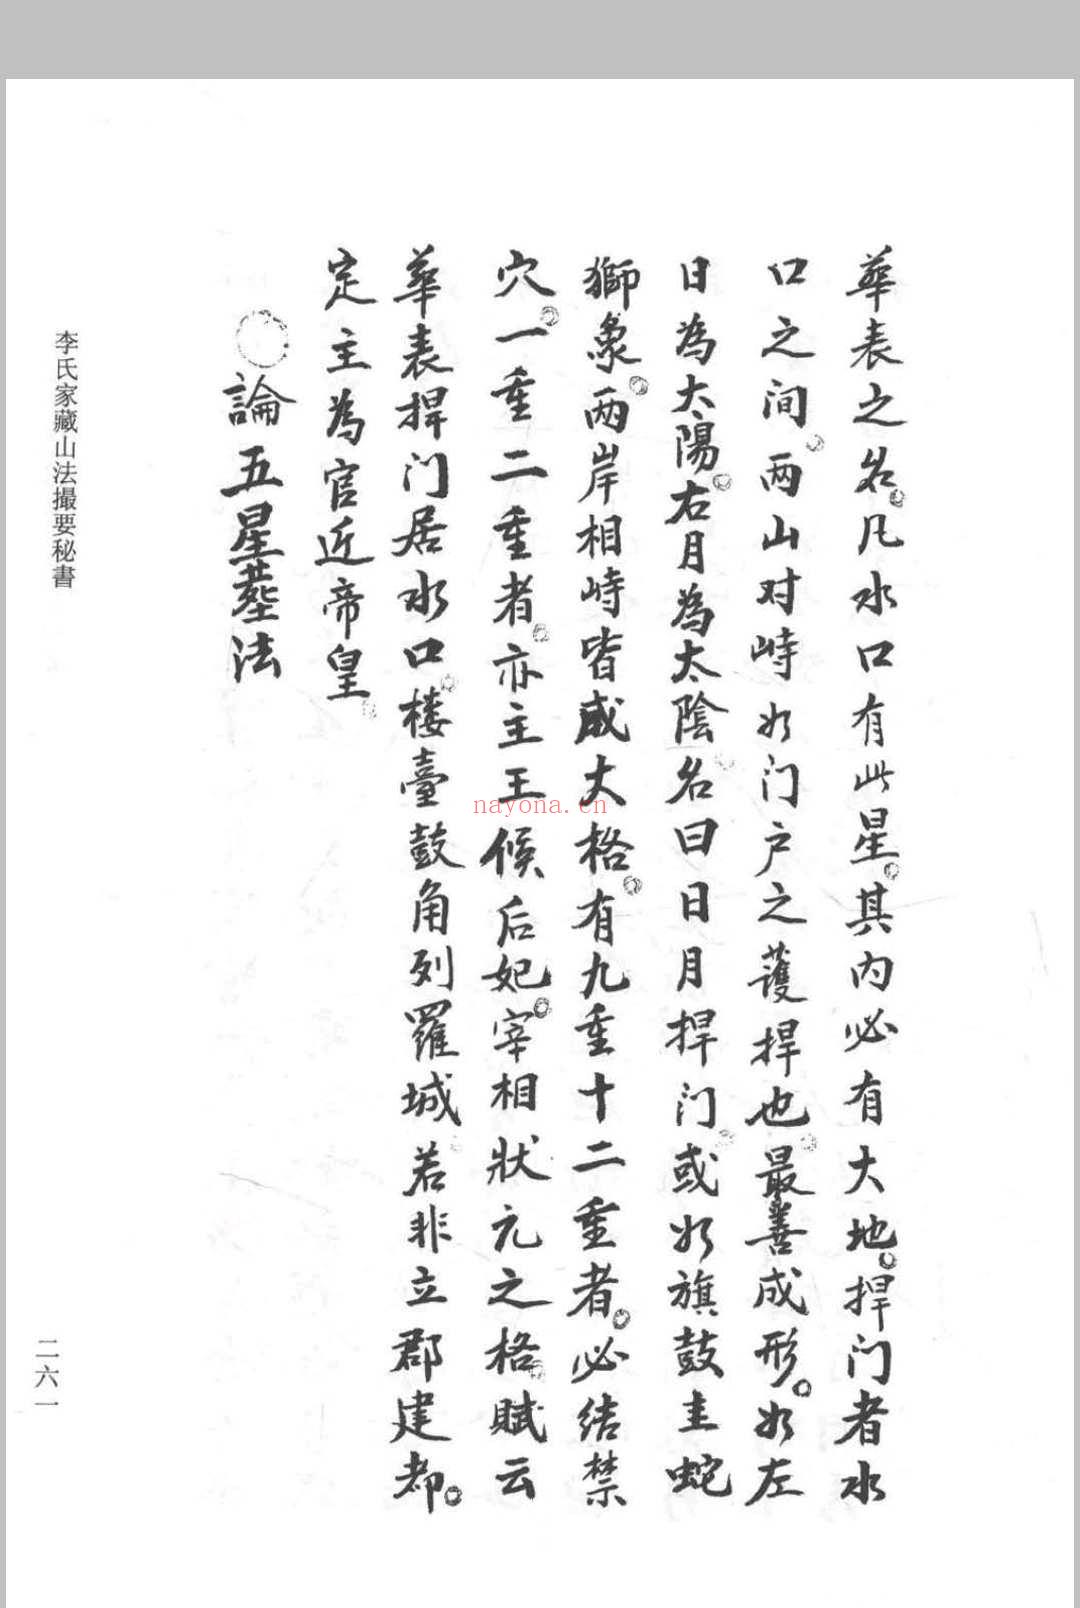 華表之名。凡水口有此星。其内必有大地。捍门者水
口之间。两山对峙如门户之護捍也。最善成形。如左
日為太陽。右月為太陰。名曰日月捍门。或如旗鼓圭蛇
獅象。两岸相峙皆成大格。有九重十二重者。必结禁
穴。一重二重者。亦主王候后妃。宰相狀元之格。賦云
華表捍门居水口。楼臺鼓角列羅城。若非立郡建都。
定主為官近帝皇。
論五星塟法
李氏家藏山法撮要秘書
二六一
nayona.cn